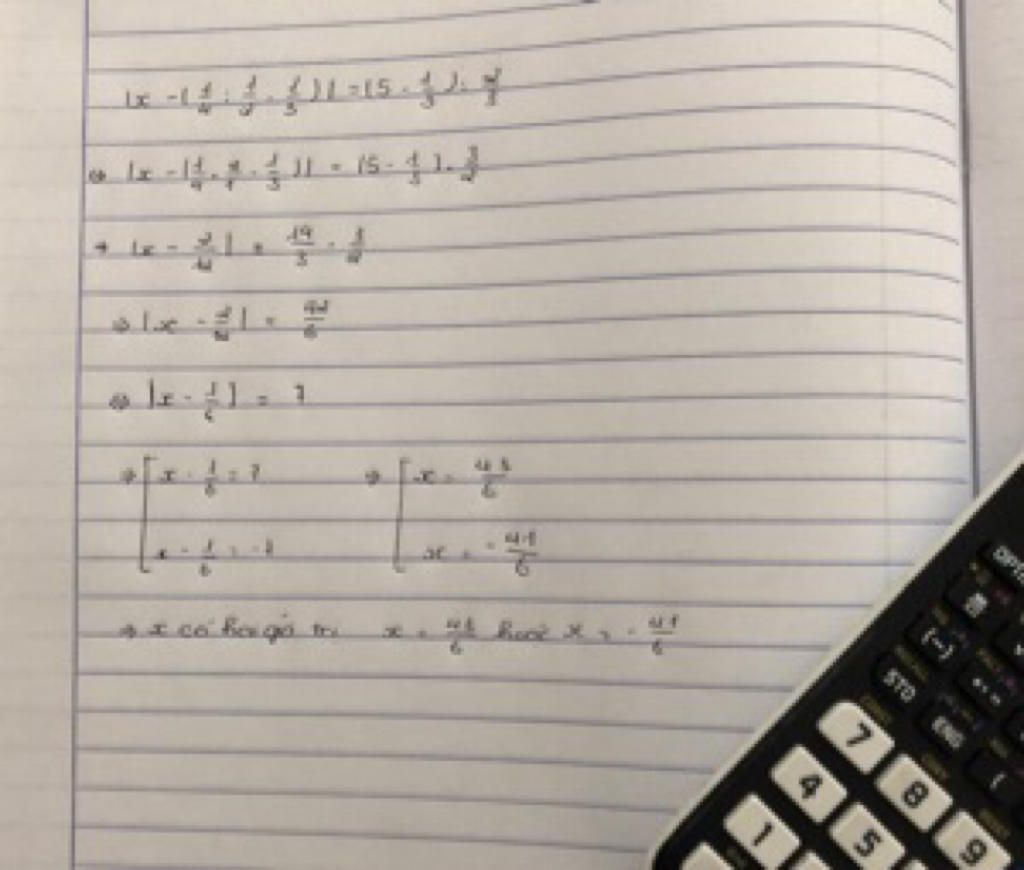 |x - (1/4 : 1/2 - 1/3)| = (5 - 1/3) : 2/3
⇒ |x - (1/4 . 2/1 - 1/3)| = (5 - 1/3) . 3/2
⇒ |x - 2/12| = 14/3 . 3/2
⇒ |x - 2/12| = 42/6
⇒ |x - 1/6| = 7
⇒ [ x - 1/6 = 7 ⇒ [ x = 43/6
x - 1/6 = -7 x = -41/6
⇒ x có hai giá trị x = 43/6 hoặc x = -41/6
OPTN
(-)
STO
ENG
(
7
8
9
4
5
1